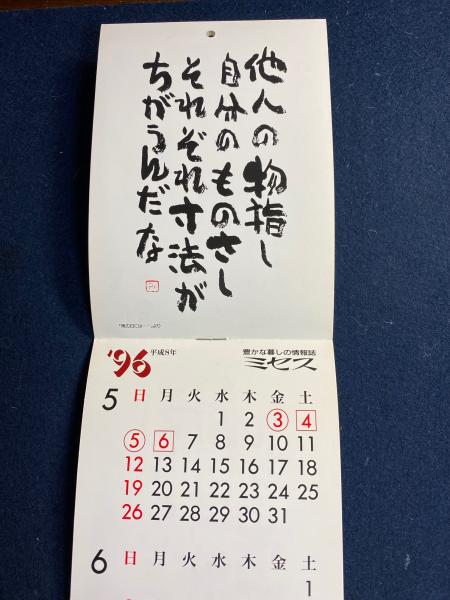 他人の物指し
自分のものさし
それぞれ寸法が
ちがうんだな
'96 平成8年
豊かな暮しの情報誌
ミセス
5 日 月 火 水 木 金 土
1 2 3 4
5 6 7 8 9 10 11
12 13 14 15 16 17 18
19 20 21 22 23 24 25
26 27 28 29 30 31
6 日 月 火 水 木 金 土
1